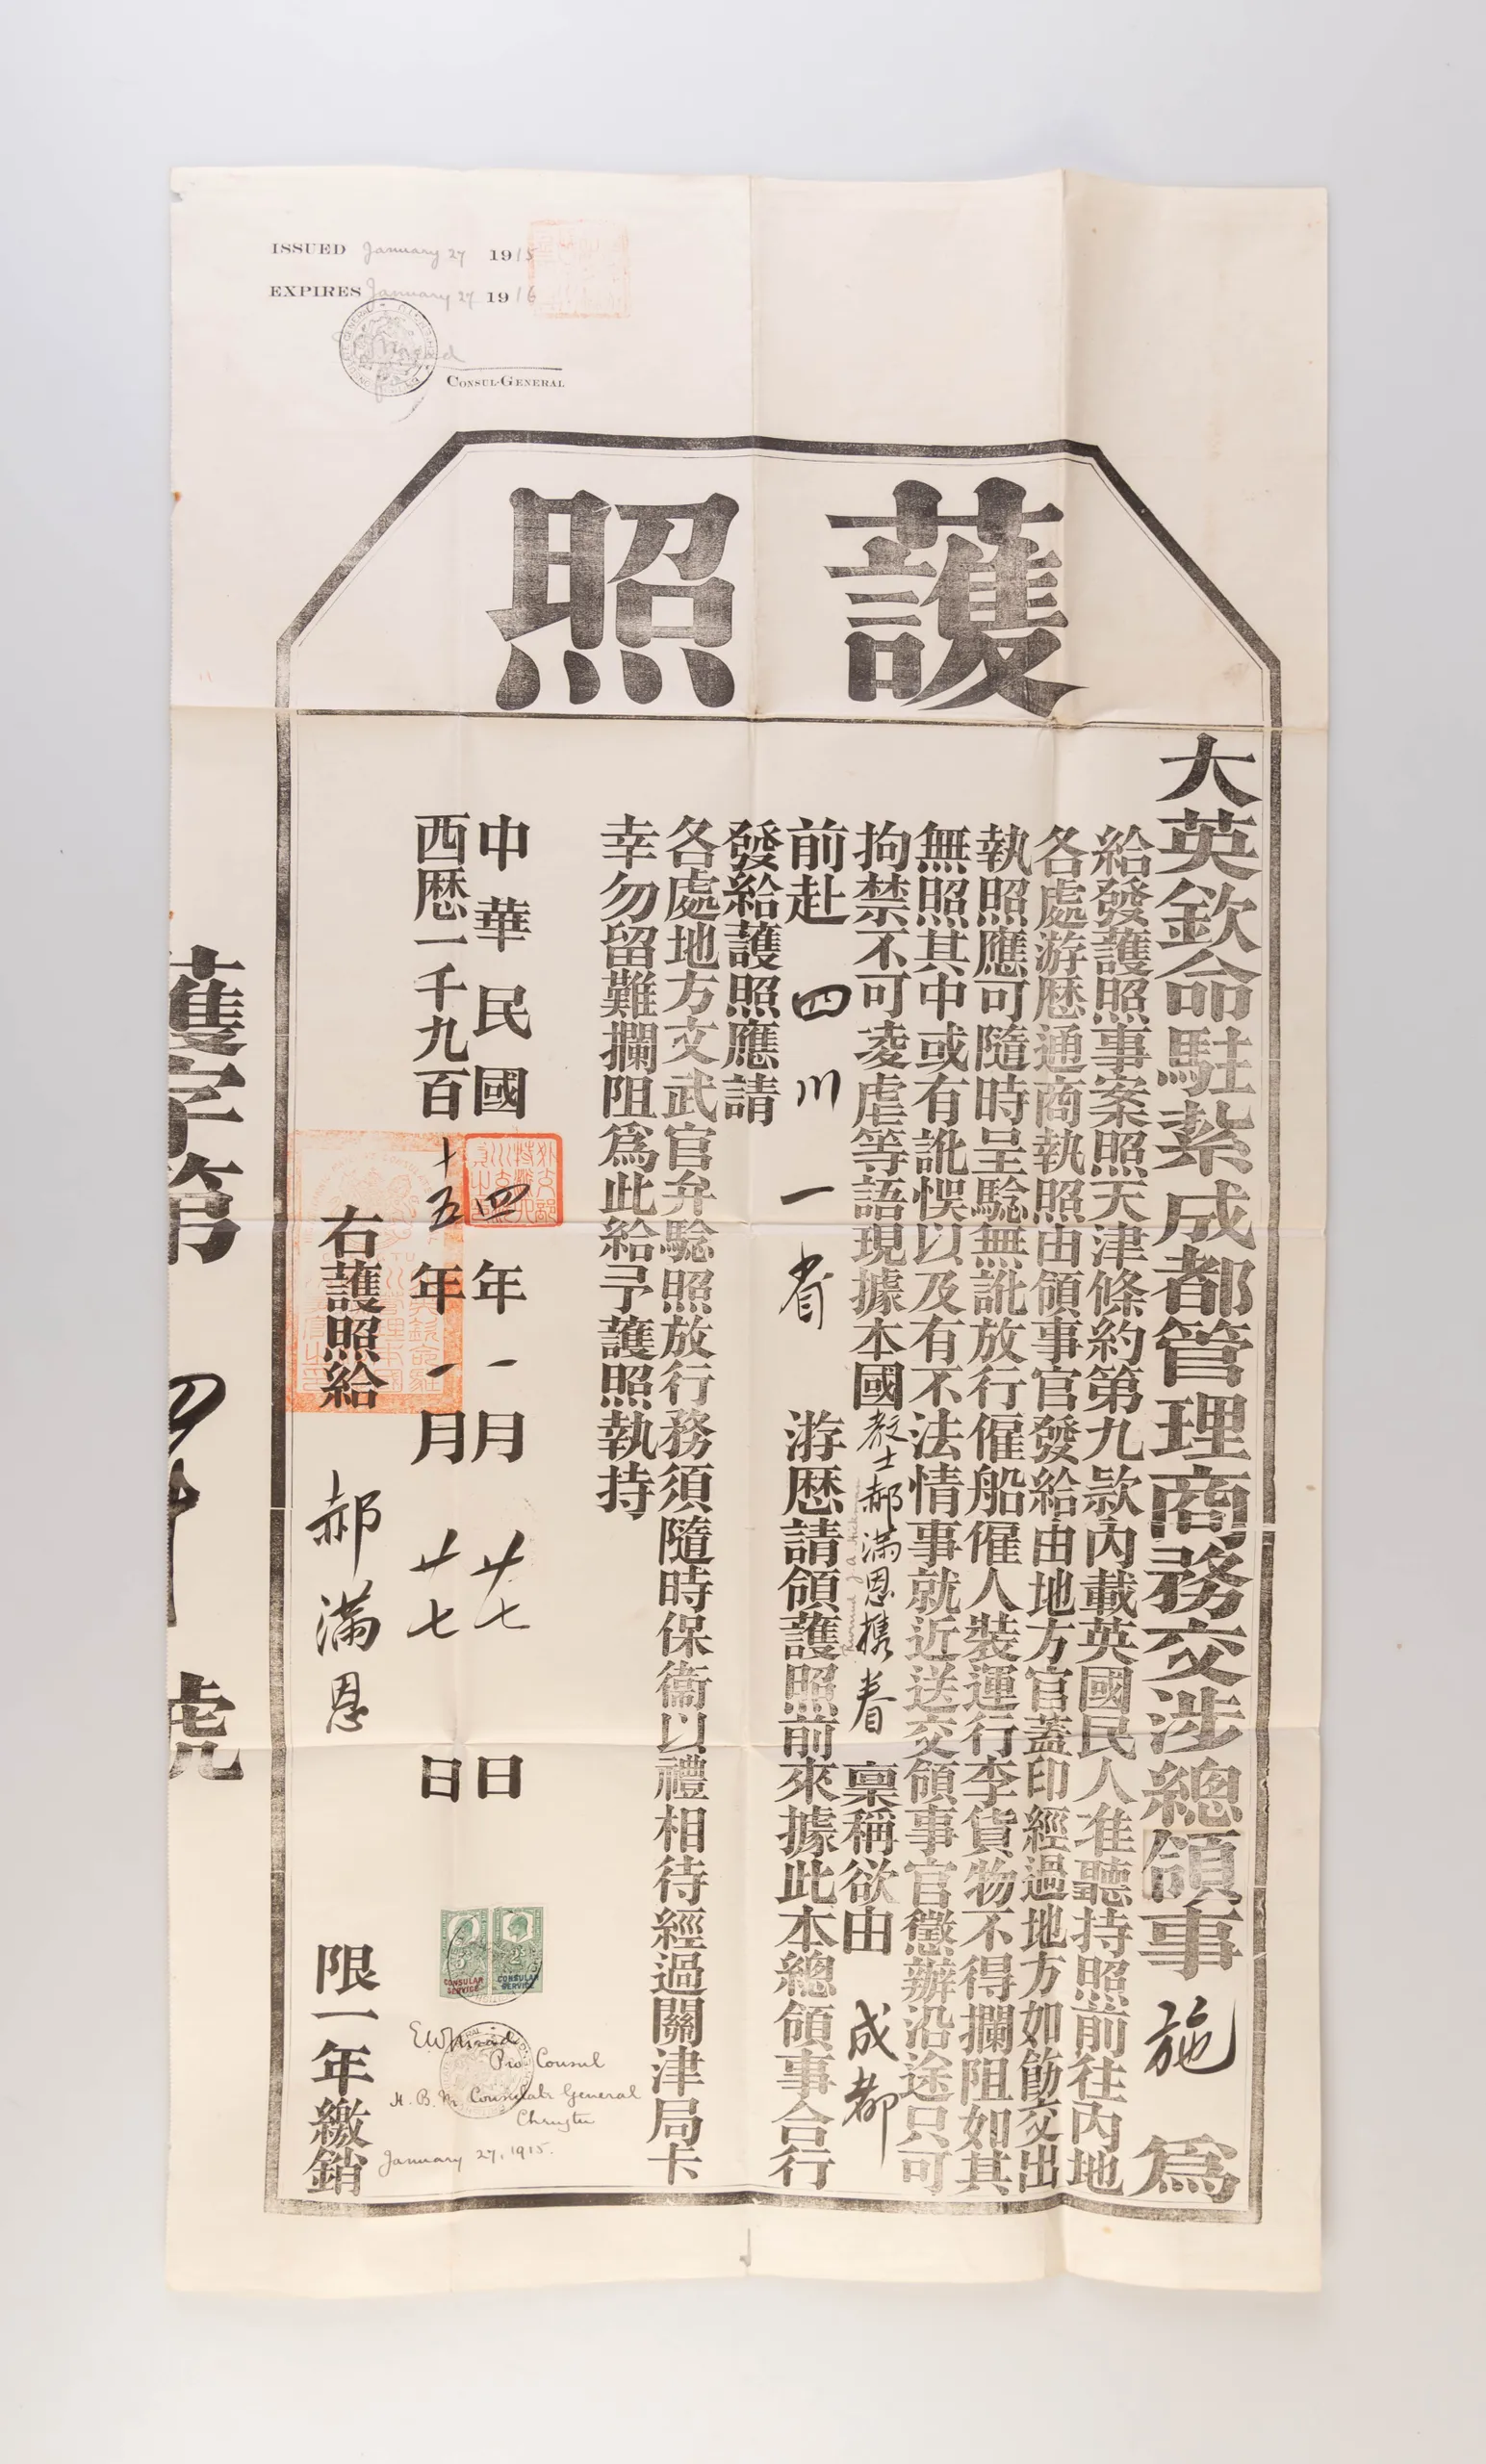 ISSUED January 27 1915
EXPIRES January 27 1916
CONSUL-GENERAL
護照
大英欽命駐紮成都管理商務交涉總領事施爲
給發護照事案照天津條約第九款內載英國民人准聽持照前往內地
各處游歷通商執照由領事官發給由地方官蓋印經過地方如飭交出
執照應可隨時呈驗無訛放行僱船僱人裝運行李貨物不得攔阻如其
無照其中或有訛悞以及有不法情事就近送交領事官懲辦沿途只可
拘禁不可凌虐等語現據本國教士郝滿恩攜眷稟稱欲由成都
前赴四川一省游歷請領護照前來據此本總領事合行
發給護照應請
各處地方文武官弁驗照放行務須隨時保衞以禮相待經過關津局卡
幸勿留難攔阻爲此給予護照執持
中華民國四年一月廿七日
西歷一千九百十五年一月廿七日
右護照給郝滿恩
限一年繳銷
護字第四十號
CONSULAR SERVICE
CONSULAR SERVICE
Pro-Consul
H. B. M. Consulate General
Chengtu
January 27, 1915.